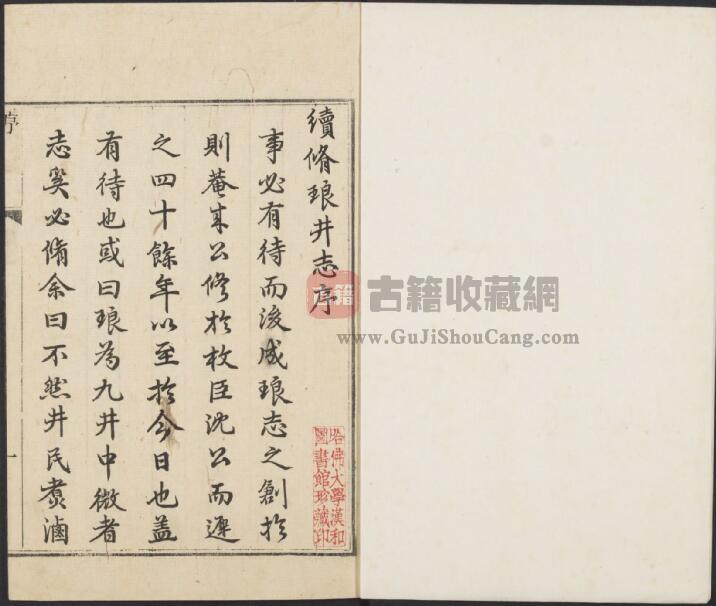 續脩琅井志序
事必有待而後成琅志之創於
則菴来公修於枚臣沈公而遲
之四十餘年以至於今日也蓋
有待也或曰琅為九井中微者
志奚必脩余曰不然井民煑滷
序
一
哈佛大學漢和
圖書館珍藏印
古籍
古籍收藏網
www.GuJiShouCang.com